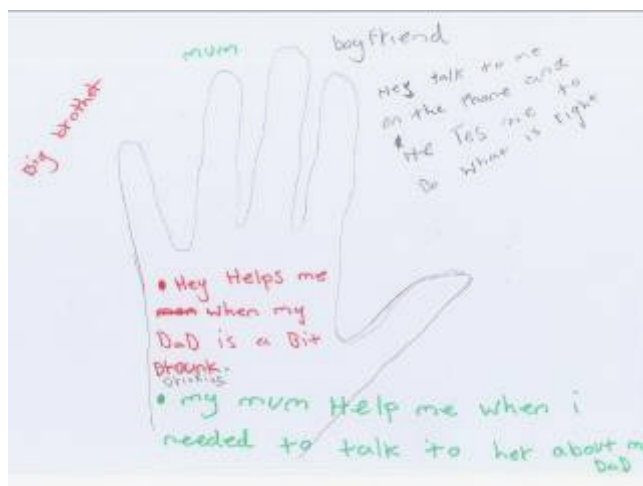 mum
boyfriend
Big brother
Hey talk to me
on the Phone and
He Tes me to
Do what is right
• Hey Helps me
when my
DaD is a Bit
Drunk.
Drinking
• my mum Help me when i
needed to talk to her about m
DaD